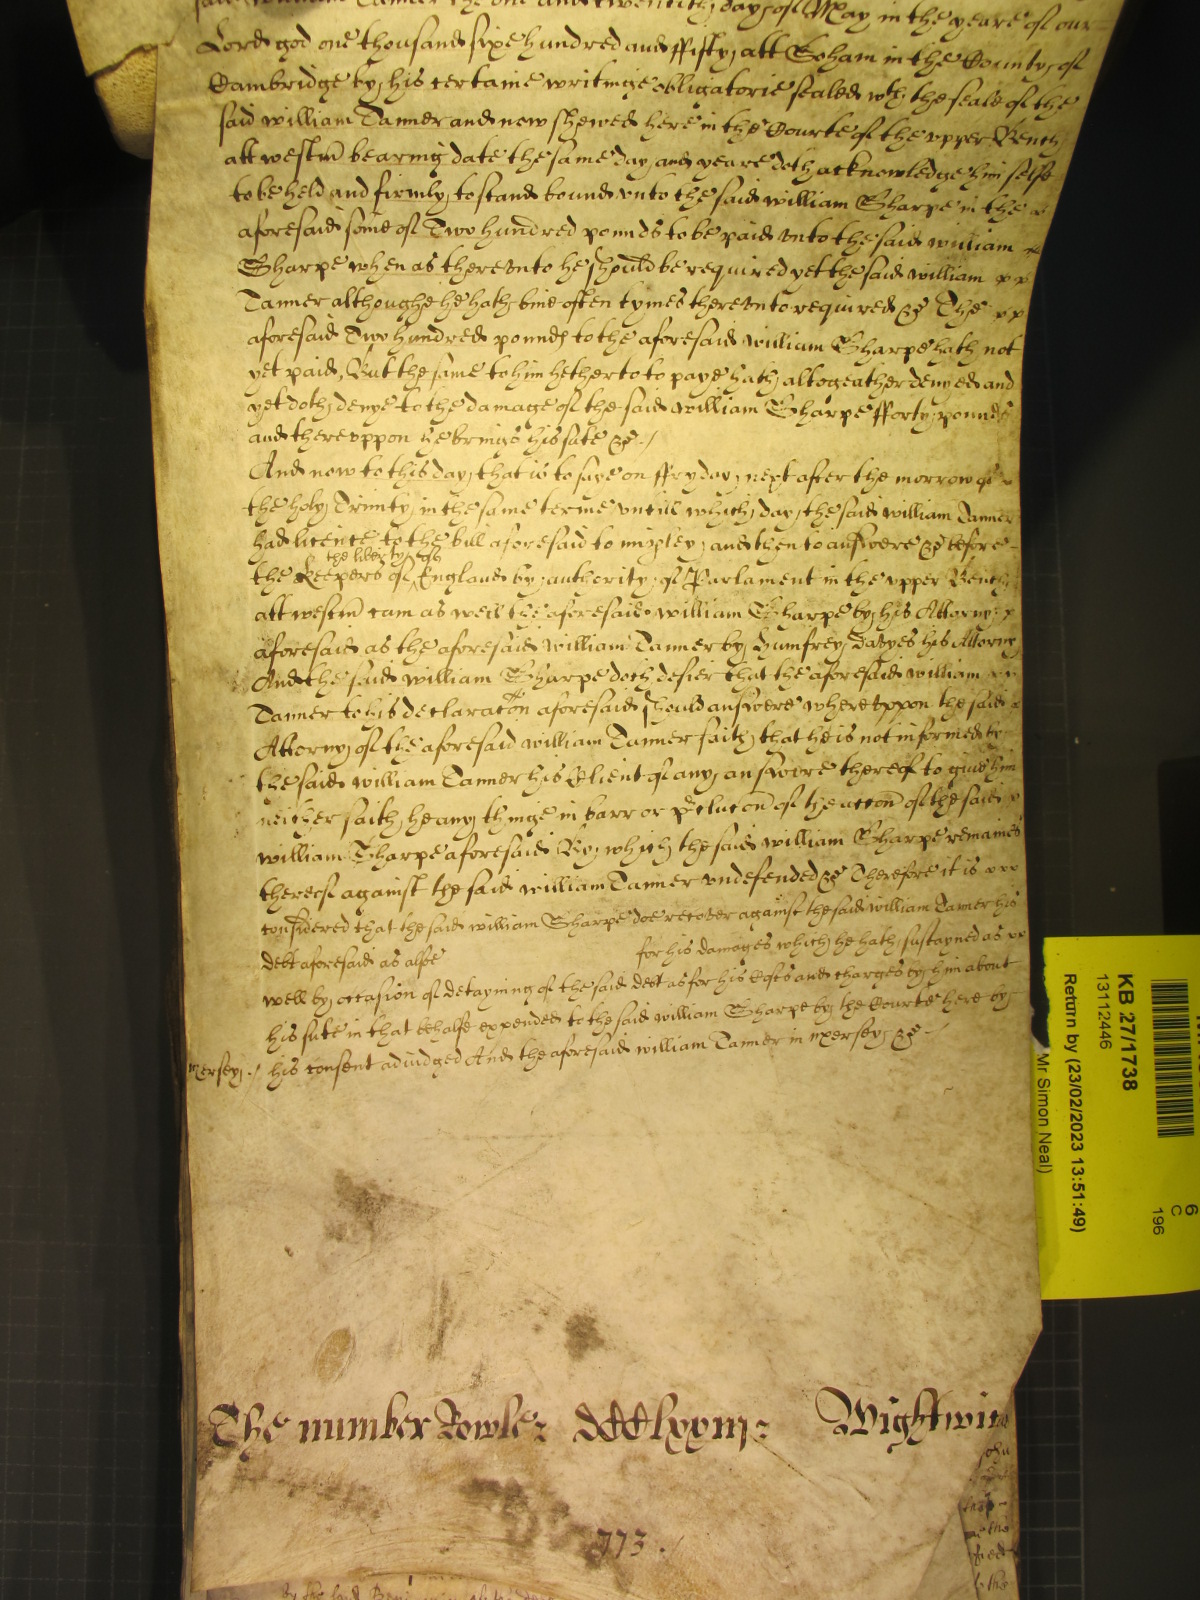 said William Tanner the one and twentith day of May in the yeare of our
Lord god one thousand sixe hundred and ffifty att Soham in the County of
Cambridge by his certaine writinge obligatorie sealed wth the seale of the
said william Tanner and now shewed here in the Courte of the vpper Bench
att westm bearing date the same day and yeare doth acknowledge him selfe
to be held and firmly to stand bound vnto the said william Sharpe in the
aforesaid some of Two hundred pounds to be paid vnto the said william
Sharpe when as therevnto he should be required yet the said william
Tanner althoughe he hath bine often tymes therevnto required &c The
aforesaid Two hundred pounds to the aforesaid william Sharpe hath not
yet paid, But the same to him hetherto to paye hath altogeather denyed and
yet doth denye to the damage of the said william Sharpe fforty pounds
and therevppon he brings his sute &c
And now to this day that is to saye on ffryday next after the morrow of
the holy Trinity in the same terme vntill which day the said william Tanner
had licence to the bill aforesaid to imparley and then to answere &c before
the liberty of
the keepers of England by authority of Parlament in the vpper Bench
att westm cam as well the aforesaid william Sharpe by his Attorny
aforesaid as the aforesaid william Tanner by Humfrey Davyes his Attorny
And the said william Sharpe doth desier that the aforesaid william
Tanner to his declaracon aforesaid should answere wherevppon the said
Attorny of the aforesaid william Tanner saith that he is not informed by
the said william Tanner his Client of any answere thereof to give him
neither saith he any thinge in barr or of the accon of the said
william Sharpe aforesaid By which the said william Sharpe remaines
thereof against the said william Tanner vndefended &c Therefore it is
considered that the said william Sharpe doe recover against the said william Tanner his
debt aforesaid as alsoe for his damages which he hath sustayned as
well by occasion of detayning of the said debt as for his Costs and charges by him about
his sute in that behalfe expended to the said william Sharpe by the Courte here by
Mersey his consent adiudged And the aforesaid william Tanner in mersey &c
The number Rowle: Wightwick
773
KB 27/1738
13112446
Return by (23/02/2023 13:51:49)
Mr Simon Neal)
6
C
196